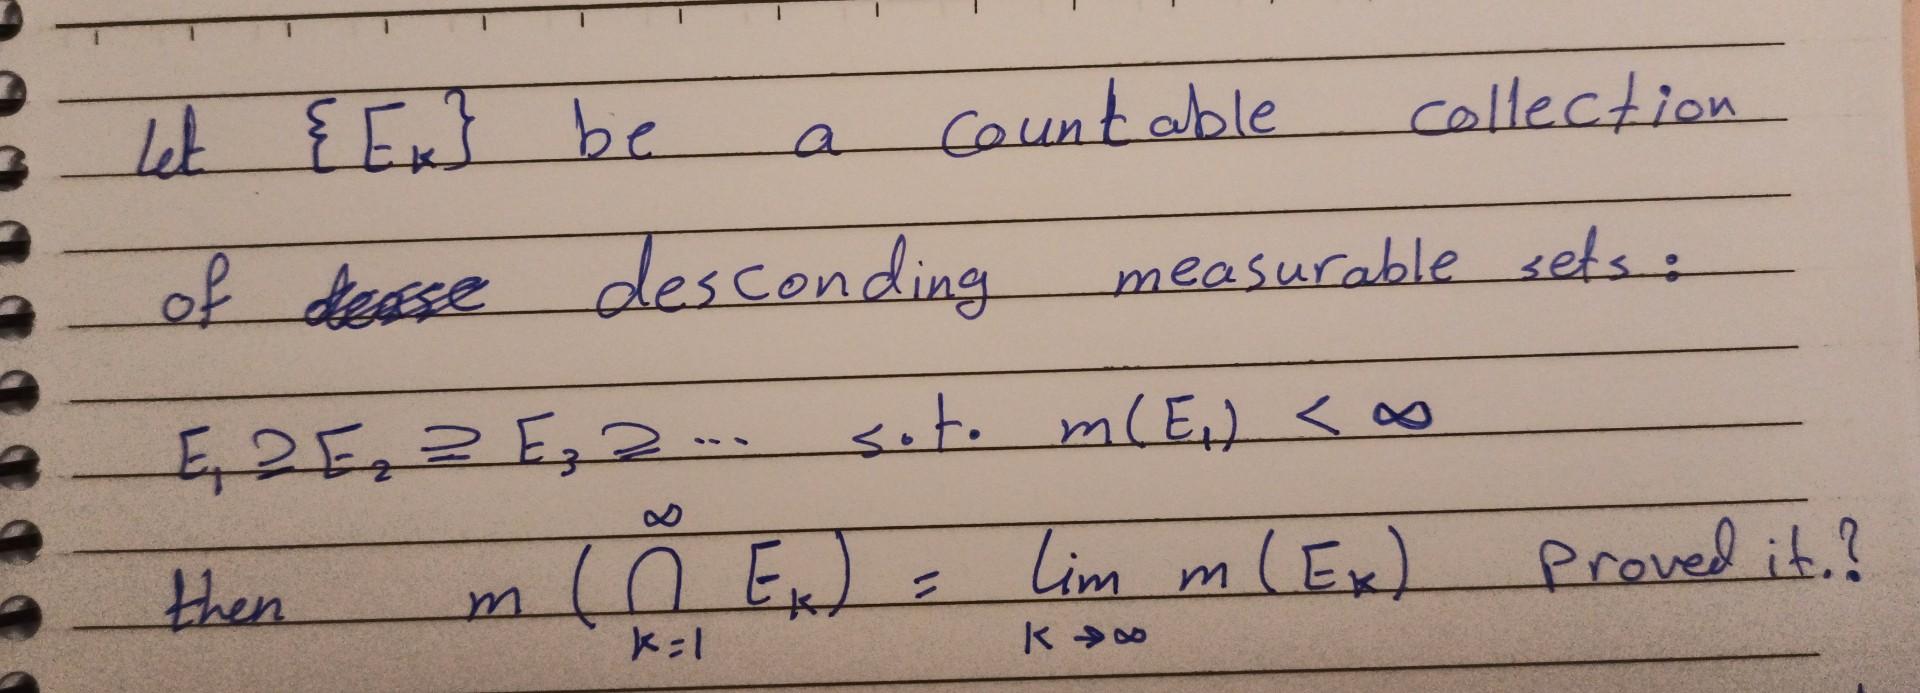 Let {E_k} be a countable collection
of desconding measurable sets:
E₁ ⊇ E₂ ⊇ E₃ ⊇ ... s.t. m(E₁) < ∞
then m(⋂_{k=1}^{∞} E_k) = lim_{k→∞} m(E_k) Proved it.?